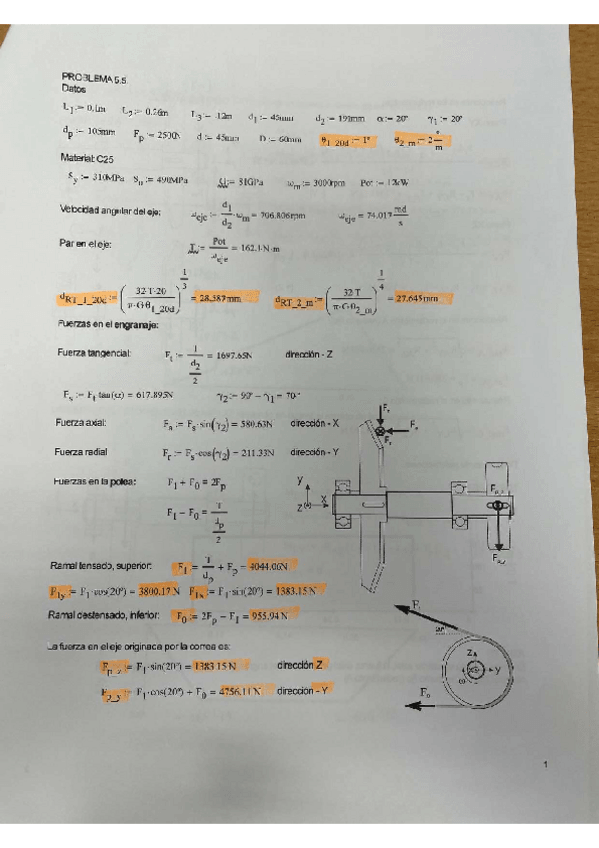 PROBLEMA 5.5.
Datos
L₁ := 0.1m L₂ := 0.26m L₃ := .12m d₁ := 45mm d₂ := 191mm α := 20° γ₁ := 20°
d_p := 105mm F_p := 2500N d := 45mm D := 60mm θ_1_20d := 1° θ_2_m := 2·°/m
Material: C25
S_y := 310MPa S_u := 490MPa G := 81GPa ω_m := 3000rpm Pot := 12kW
Velocidad angular del eje: ω_eje := d₁/d₂·ω_m = 706.806rpm ω_eje = 74.017 rad/s
Par en el eje: T := Pot/ω_eje = 162.1·N·m
d_RT_1_20d := (32·T·20/(π·G·θ_1_20d))^(1/3) = 28.587mm d_RT_2_m := (32·T/(π·G·θ_2_m))^(1/4) = 27.645mm
Fuerzas en el engranaje:
Fuerza tangencial: F_t := T/(d₂/2) = 1697.65N dirección - Z
F_s := F_t·tan(α) = 617.895N γ₂ := 90° − γ₁ = 70·°
Fuerza axial: F_a := F_s·sin(γ₂) = 580.63N dirección - X
Fuerza radial F_r := F_s·cos(γ₂) = 211.33N dirección - Y
Fuerzas en la polea: F₁ + F₀ = 2F_p
F₁ − F₀ = T/(d_p/2)
Ramal tensado, superior: F₁ := T/d_p + F_p = 4044.06N
F_1y := F₁·cos(20°) = 3800.17N F_1x := F₁·sin(20°) = 1383.15N
Ramal destensado, inferior: F₀ := 2F_p − F₁ = 955.94N
La fuerza en el eje originada por la correa es:
F_p_z := F₁·sin(20°) = 1383.15N dirección Z
F_p_y := F₁·cos(20°) + F₀ = 4756.11N dirección - Y
F_r
F_a
y
X
Z
20°
Z
Y
X
ω
F₀
1